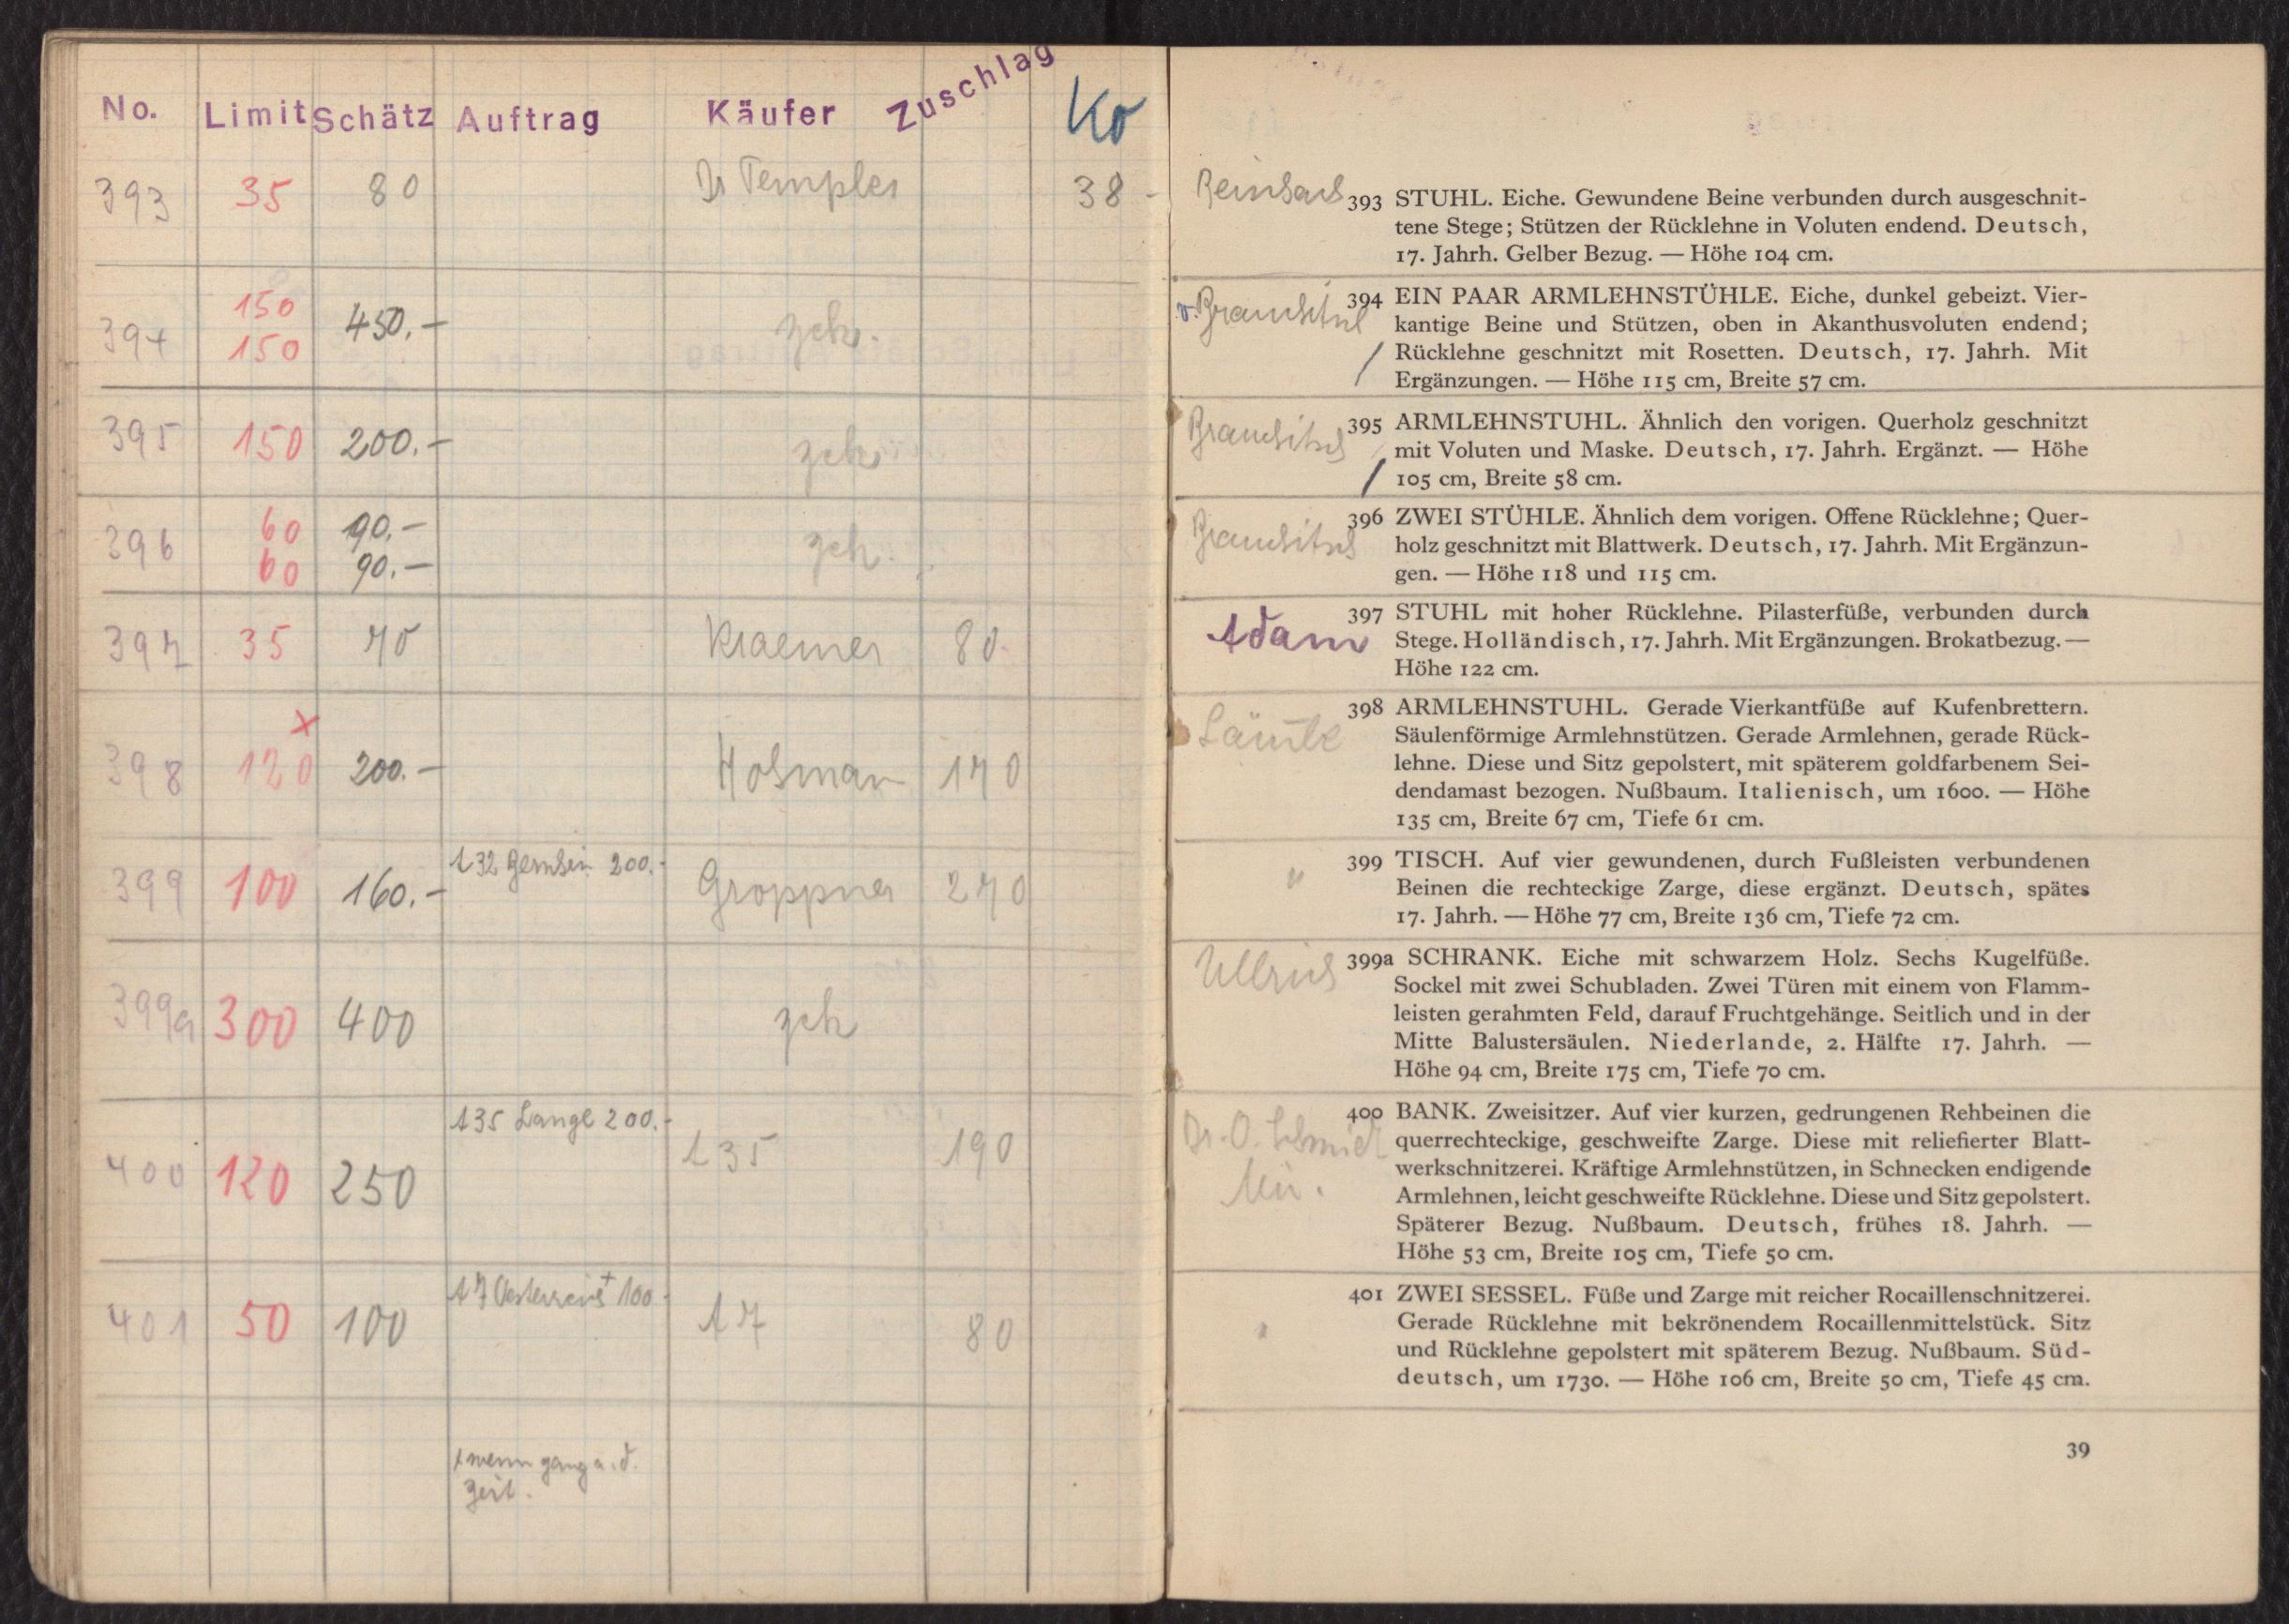 No. Limit Schätz Auftrag Käufer Zuschlag Ko
393 35 80 Dr Templer 38 -
150
394 450.- zch.
150
395 150 200.- zch
60 90.-
396 zch.
60 90.-
397 35 70 Kraemer 80.
x
398 120 200.- Hosman 170
A32 Bernheim 200.-
399 100 160.- Groppner 270
399a 300 400 zch
A35 Lange 200.-
400 120 250 A35 190
A7 Oesterreich + 100.-
401 50 100 A7 80
+ wenn ganz a. d.
Zeit.
393 STUHL. Eiche. Gewundene Beine verbunden durch ausgeschnit-
tene Stege; Stützen der Rücklehne in Voluten endend. Deutsch,
17. Jahrh. Gelber Bezug. — Höhe 104 cm.
v. Brauchitsch 394 EIN PAAR ARMLEHNSTÜHLE. Eiche, dunkel gebeizt. Vier-
kantige Beine und Stützen, oben in Akanthusvoluten endend;
/ Rücklehne geschnitzt mit Rosetten. Deutsch, 17. Jahrh. Mit
Ergänzungen. — Höhe 115 cm, Breite 57 cm.
Brauchitsch 395 ARMLEHNSTUHL. Ähnlich den vorigen. Querholz geschnitzt
mit Voluten und Maske. Deutsch, 17. Jahrh. Ergänzt. — Höhe
/ 105 cm, Breite 58 cm.
Brauchitsch 396 ZWEI STÜHLE. Ähnlich dem vorigen. Offene Rücklehne; Quer-
holz geschnitzt mit Blattwerk. Deutsch, 17. Jahrh. Mit Ergänzun-
gen. — Höhe 118 und 115 cm.
397 STUHL mit hoher Rücklehne. Pilasterfüße, verbunden durch
Adam Stege. Holländisch, 17. Jahrh. Mit Ergänzungen. Brokatbezug. —
Höhe 122 cm.
398 ARMLEHNSTUHL. Gerade Vierkantfüße auf Kufenbrettern.
Säulenförmige Armlehnstützen. Gerade Armlehnen, gerade Rück-
lehne. Diese und Sitz gepolstert, mit späterem goldfarbenem Sei-
dendamast bezogen. Nußbaum. Italienisch, um 1600. — Höhe
135 cm, Breite 67 cm, Tiefe 61 cm.
" 399 TISCH. Auf vier gewundenen, durch Fußleisten verbundenen
Beinen die rechteckige Zarge, diese ergänzt. Deutsch, spätes
17. Jahrh. — Höhe 77 cm, Breite 136 cm, Tiefe 72 cm.
Ullrich 399a SCHRANK. Eiche mit schwarzem Holz. Sechs Kugelfüße.
Sockel mit zwei Schubladen. Zwei Türen mit einem von Flamm-
leisten gerahmten Feld, darauf Fruchtgehänge. Seitlich und in der
Mitte Balustersäulen. Niederlande, 2. Hälfte 17. Jahrh. —
Höhe 94 cm, Breite 175 cm, Tiefe 70 cm.
400 BANK. Zweisitzer. Auf vier kurzen, gedrungenen Rehbeinen die
Dr. O. Schmidt querrechteckige, geschweifte Zarge. Diese mit reliefierter Blatt-
Mü. werkschnitzerei. Kräftige Armlehnstützen, in Schnecken endigende
Armlehnen, leicht geschweifte Rücklehne. Diese und Sitz gepolstert.
Späterer Bezug. Nußbaum. Deutsch, frühes 18. Jahrh. —
Höhe 53 cm, Breite 105 cm, Tiefe 50 cm.
" 401 ZWEI SESSEL. Füße und Zarge mit reicher Rocaillenschnitzerei.
Gerade Rücklehne mit bekrönendem Rocaillenmittelstück. Sitz
und Rücklehne gepolstert mit späterem Bezug. Nußbaum. Süd-
deutsch, um 1730. — Höhe 106 cm, Breite 50 cm, Tiefe 45 cm.
39